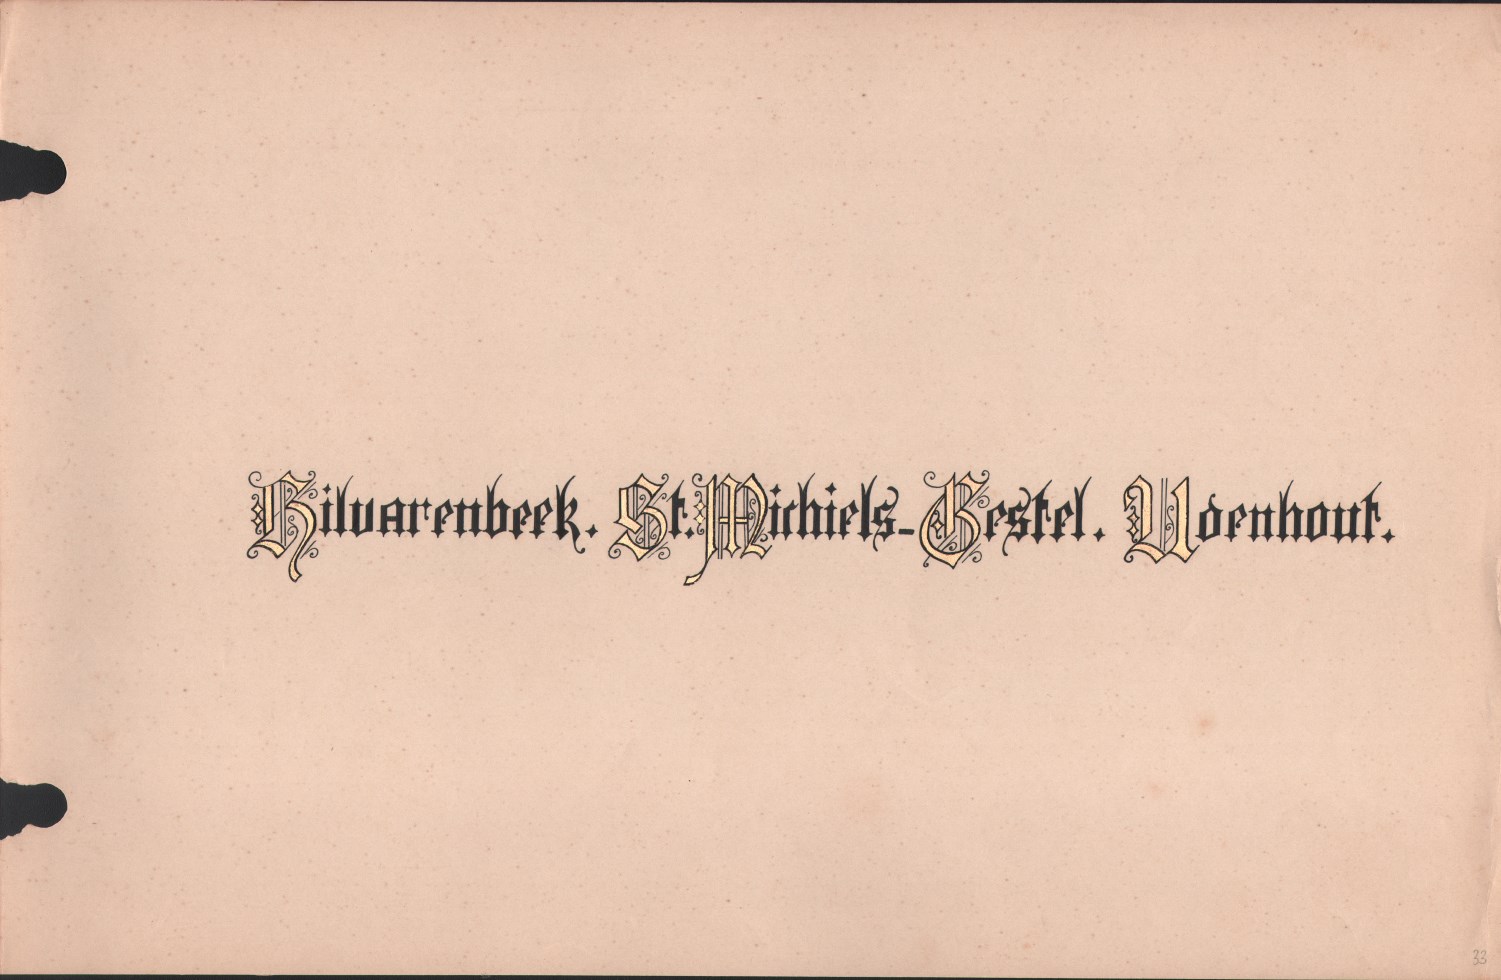 Hilvarenbeek. St. Michiels-Gestel. Udenhout.
33